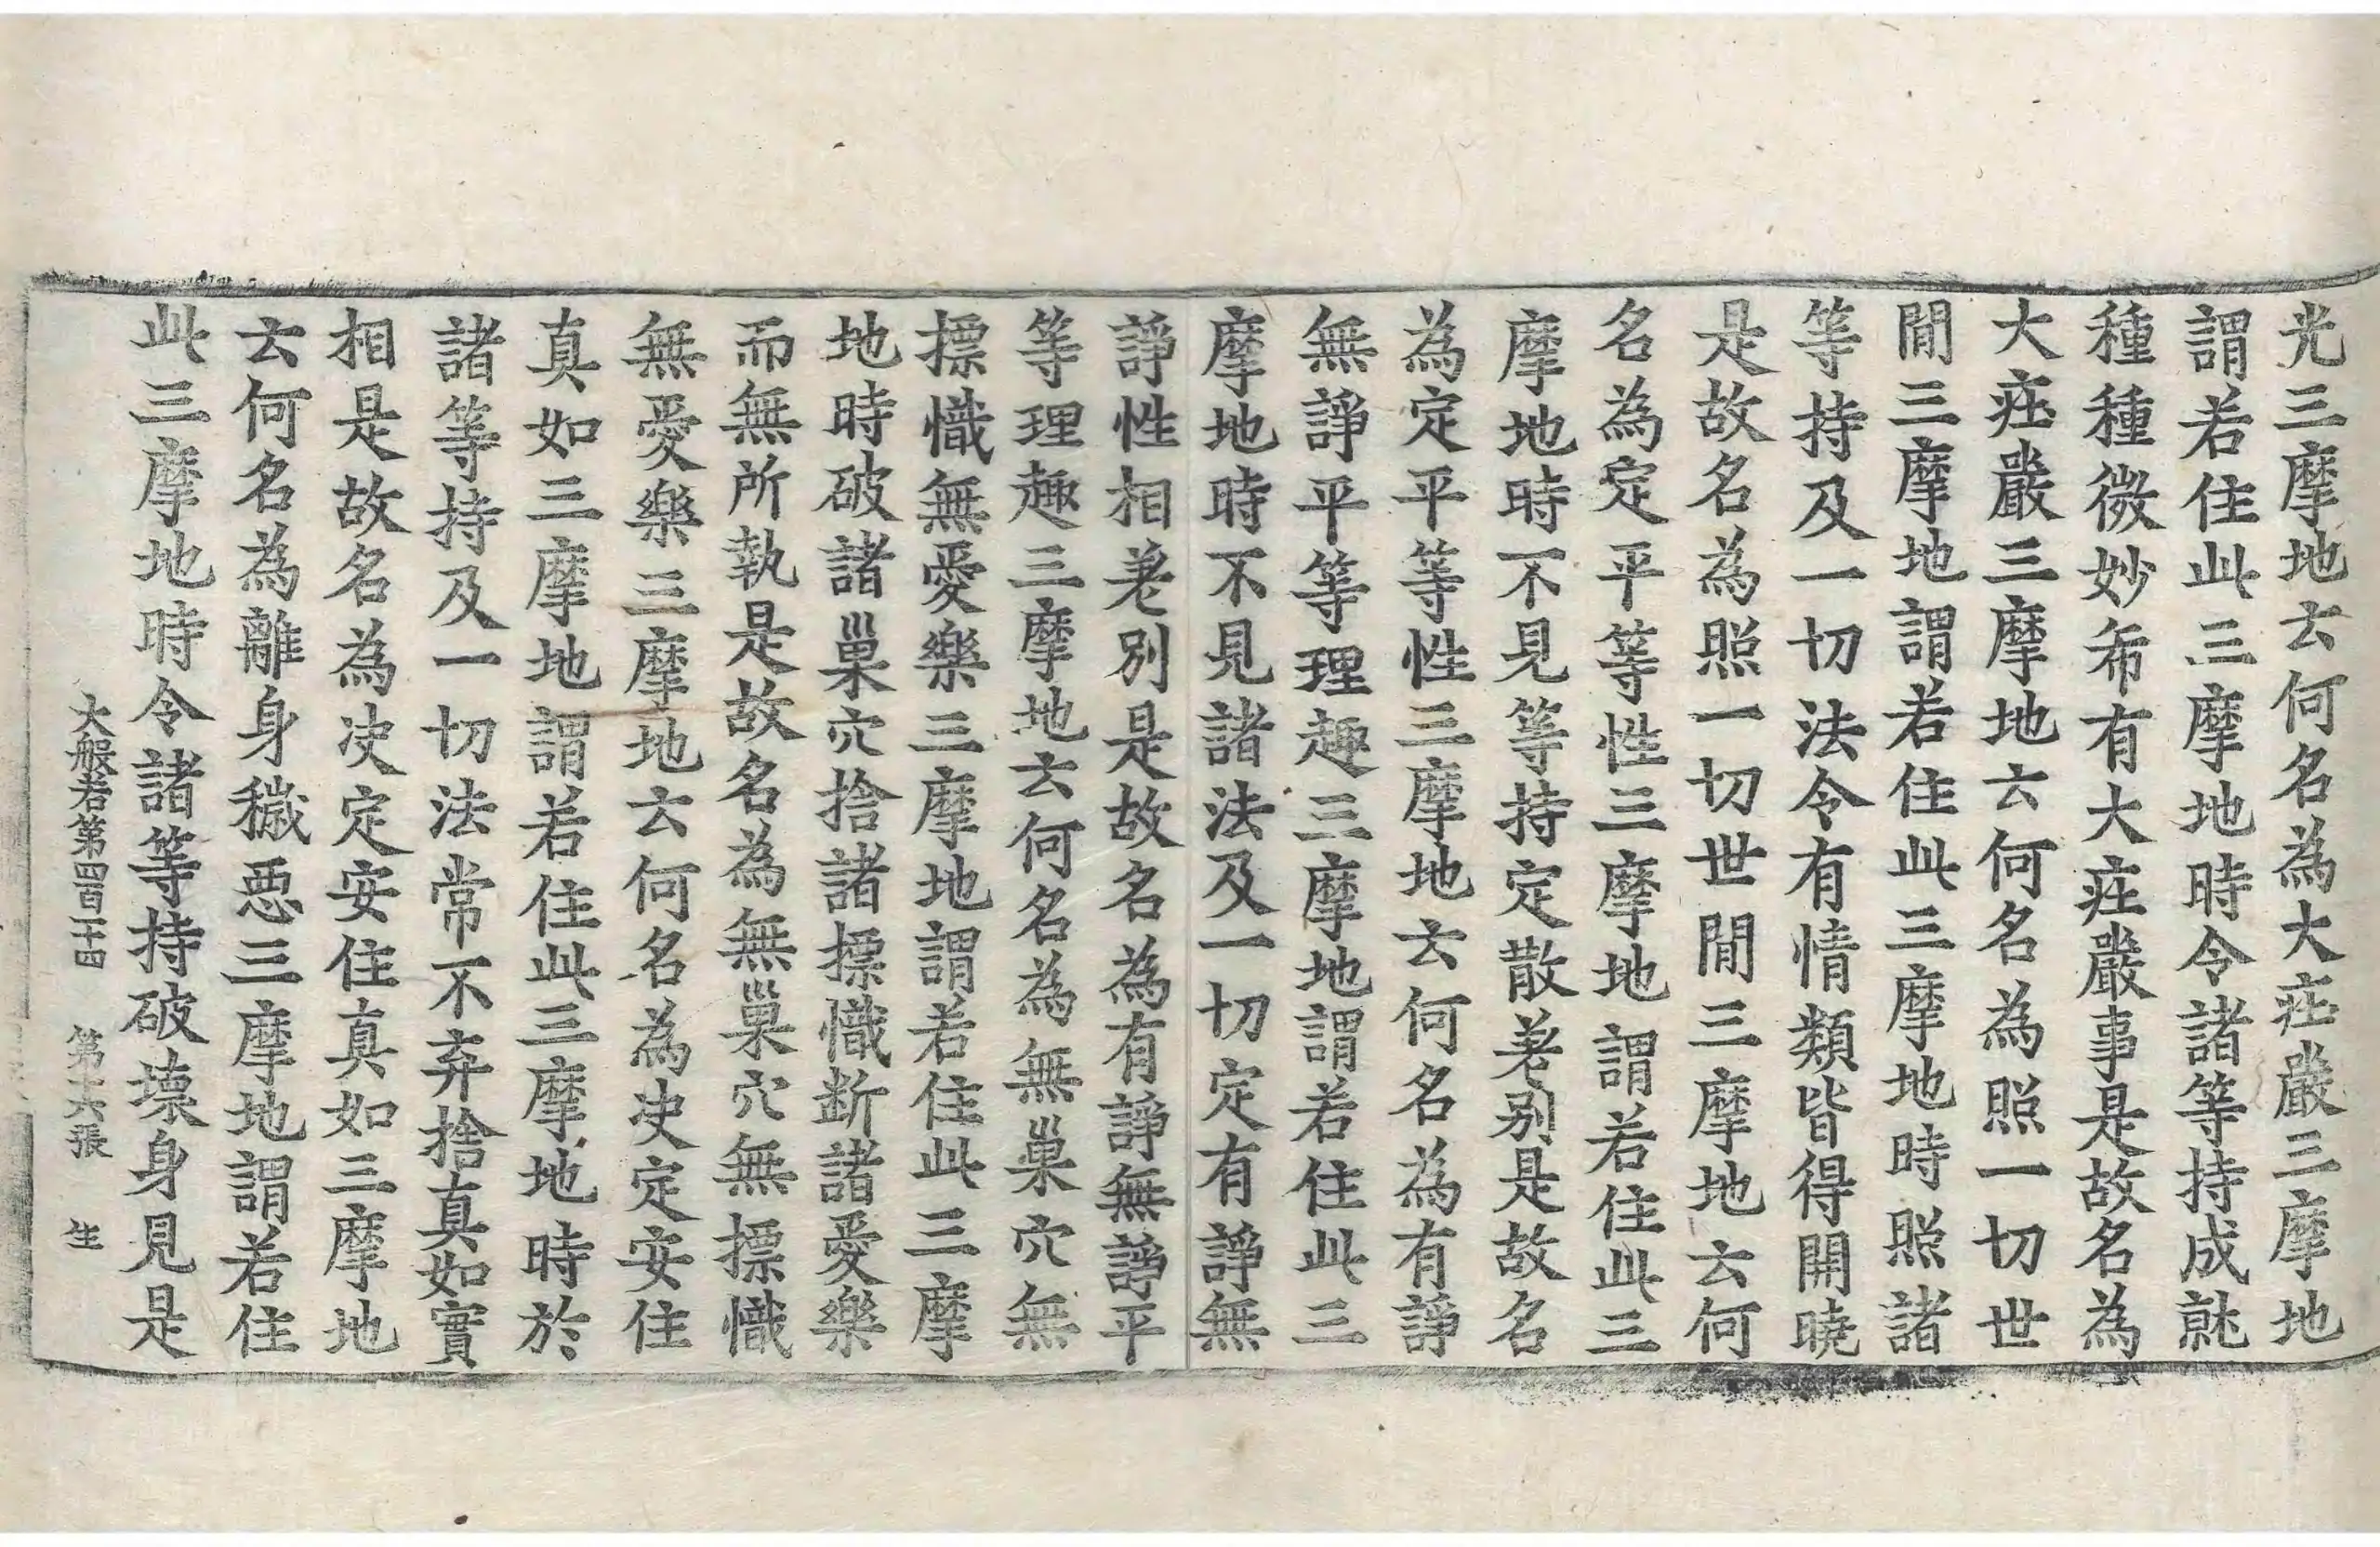 光三摩地云何名為大莊嚴三摩地
謂若住此三摩地時令諸等持成就
種種微妙希有大莊嚴事是故名為
大莊嚴三摩地云何名為照一切世
閒三摩地謂若住此三摩地時照諸
等持及一切法令有情類皆得開曉
是故名為照一切世閒三摩地云何
名為定平等性三摩地謂若住此三
摩地時不見等持定散差別是故名
為定平等性三摩地云何名為有諍
無諍平等理趣三摩地謂若住此三
摩地時不見諸法及一切定有諍無
諍性相差別是故名為有諍無諍平
等理趣三摩地云何名為無巢穴無
摽幟無愛樂三摩地謂若住此三摩
地時破諸巢穴捨諸摽幟断諸愛樂
而無所執是故名為無巢穴無摽幟
無愛樂三摩地云何名為决定安住
真如三摩地謂若住此三摩地時於
諸等持及一切法常不弃捨真如實
相是故名為决定安住真如三摩地
云何名為離身穢惡三摩地謂若住
此三摩地時令諸等持破壞身見是
大般若第四百二十四　第十六張　生